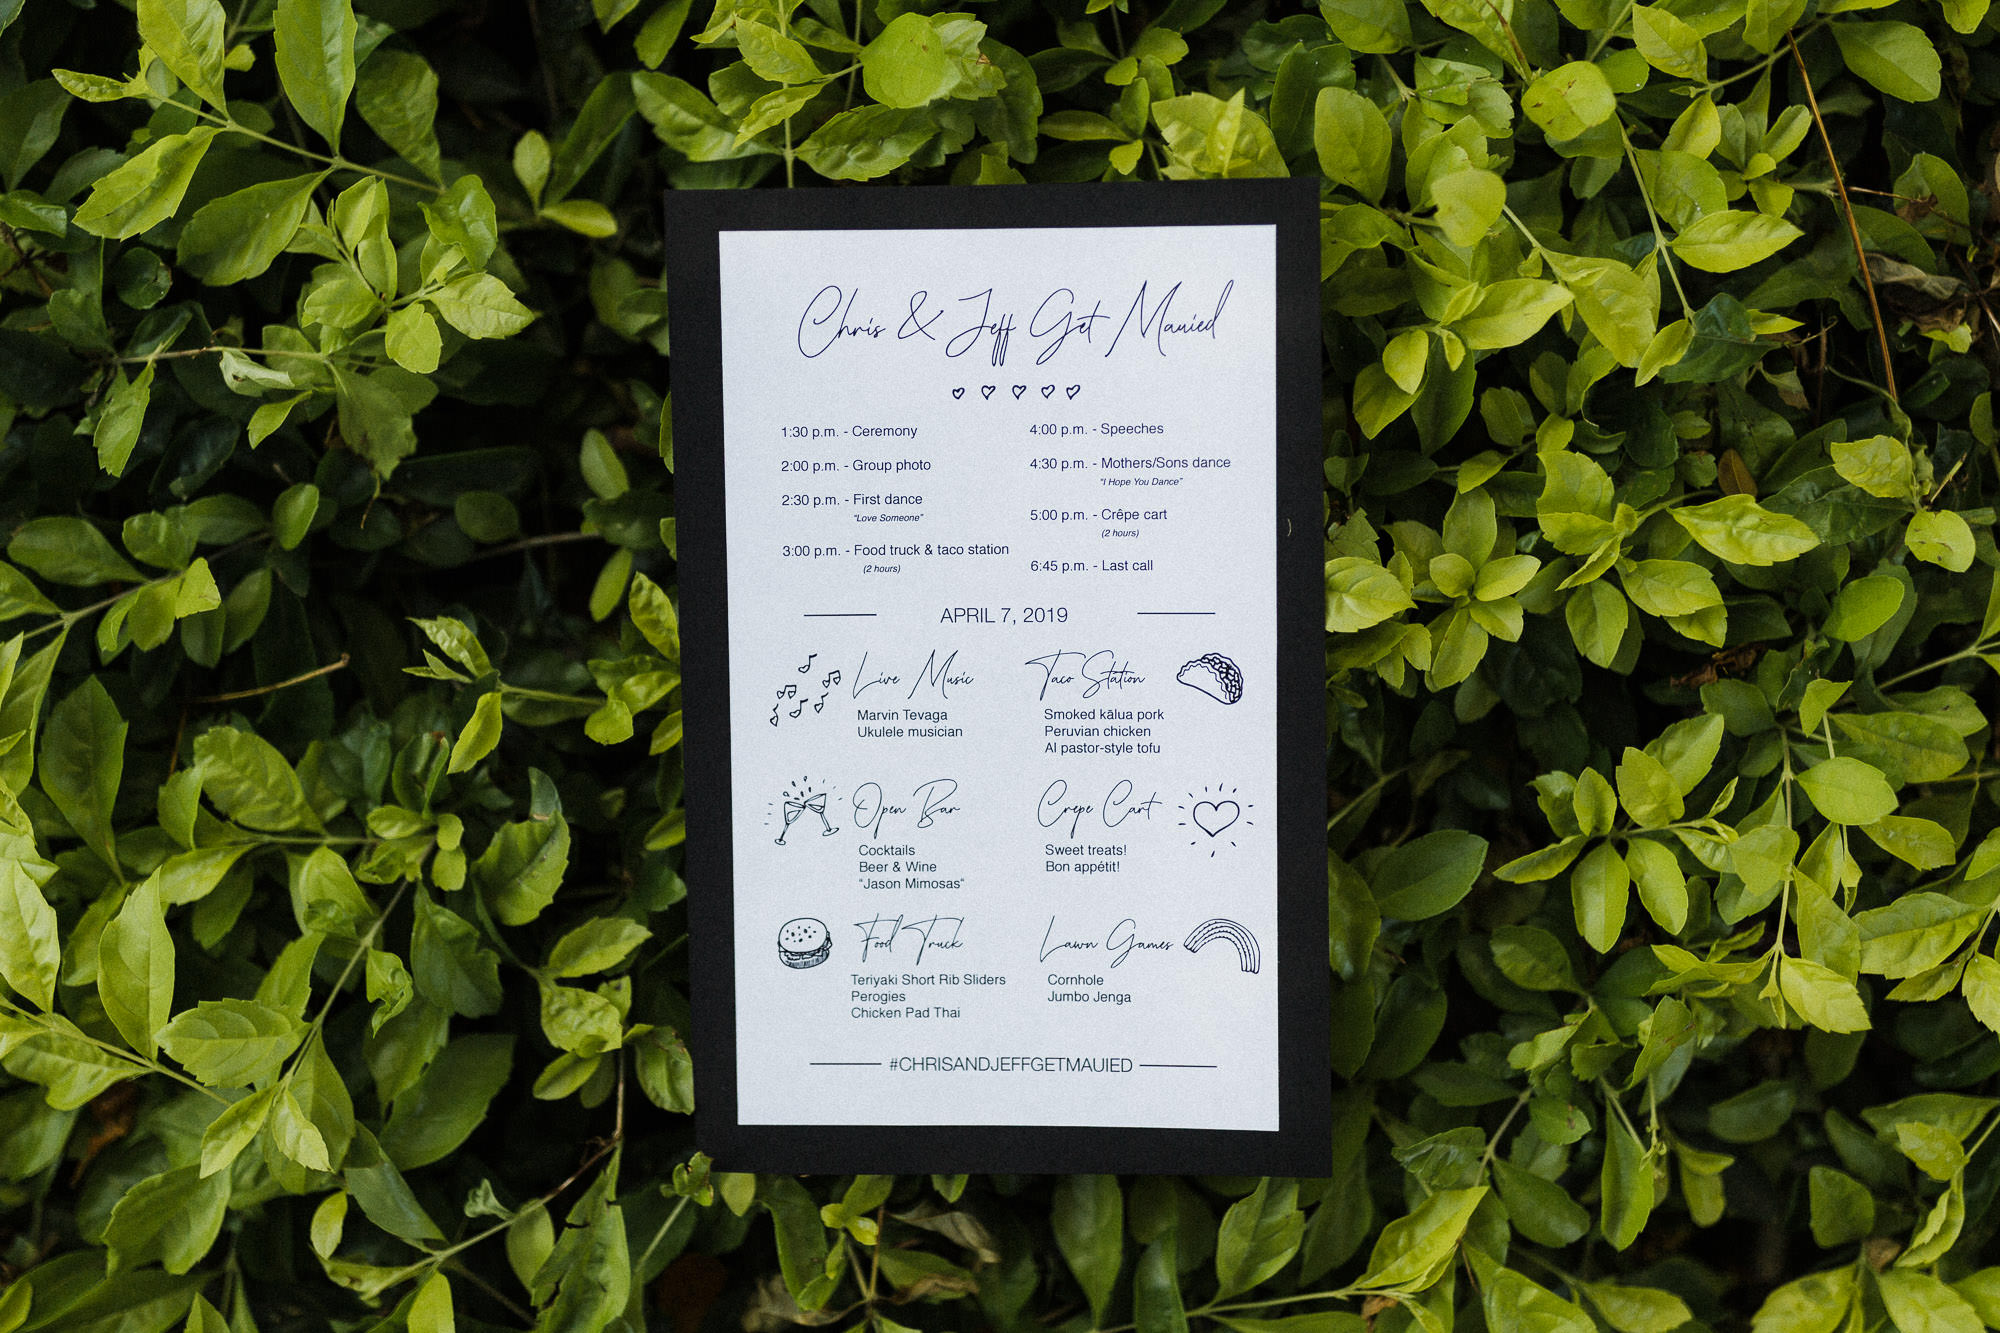 Chris & Jeff Get Mauied
1:30 p.m. - Ceremony
2:00 p.m. - Group photo
2:30 p.m. - First dance
"Love Someone"
3:00 p.m. - Food truck & taco station
(2 hours)
4:00 p.m. - Speeches
4:30 p.m. - Mothers/Sons dance
"I Hope You Dance"
5:00 p.m. - Crêpe cart
(2 hours)
6:45 p.m. - Last call
APRIL 7, 2019
Live Music
Marvin Tevaga
Ukulele musician
Open Bar
Cocktails
Beer & Wine
"Jason Mimosas"
Food Truck
Teriyaki Short Rib Sliders
Perogies
Chicken Pad Thai
Taco Station
Smoked kālua pork
Peruvian chicken
Al pastor-style tofu
Crepe Cart
Sweet treats!
Bon appétit!
Lawn Games
Cornhole
Jumbo Jenga
#CHRISANDJEFFGETMAUIED